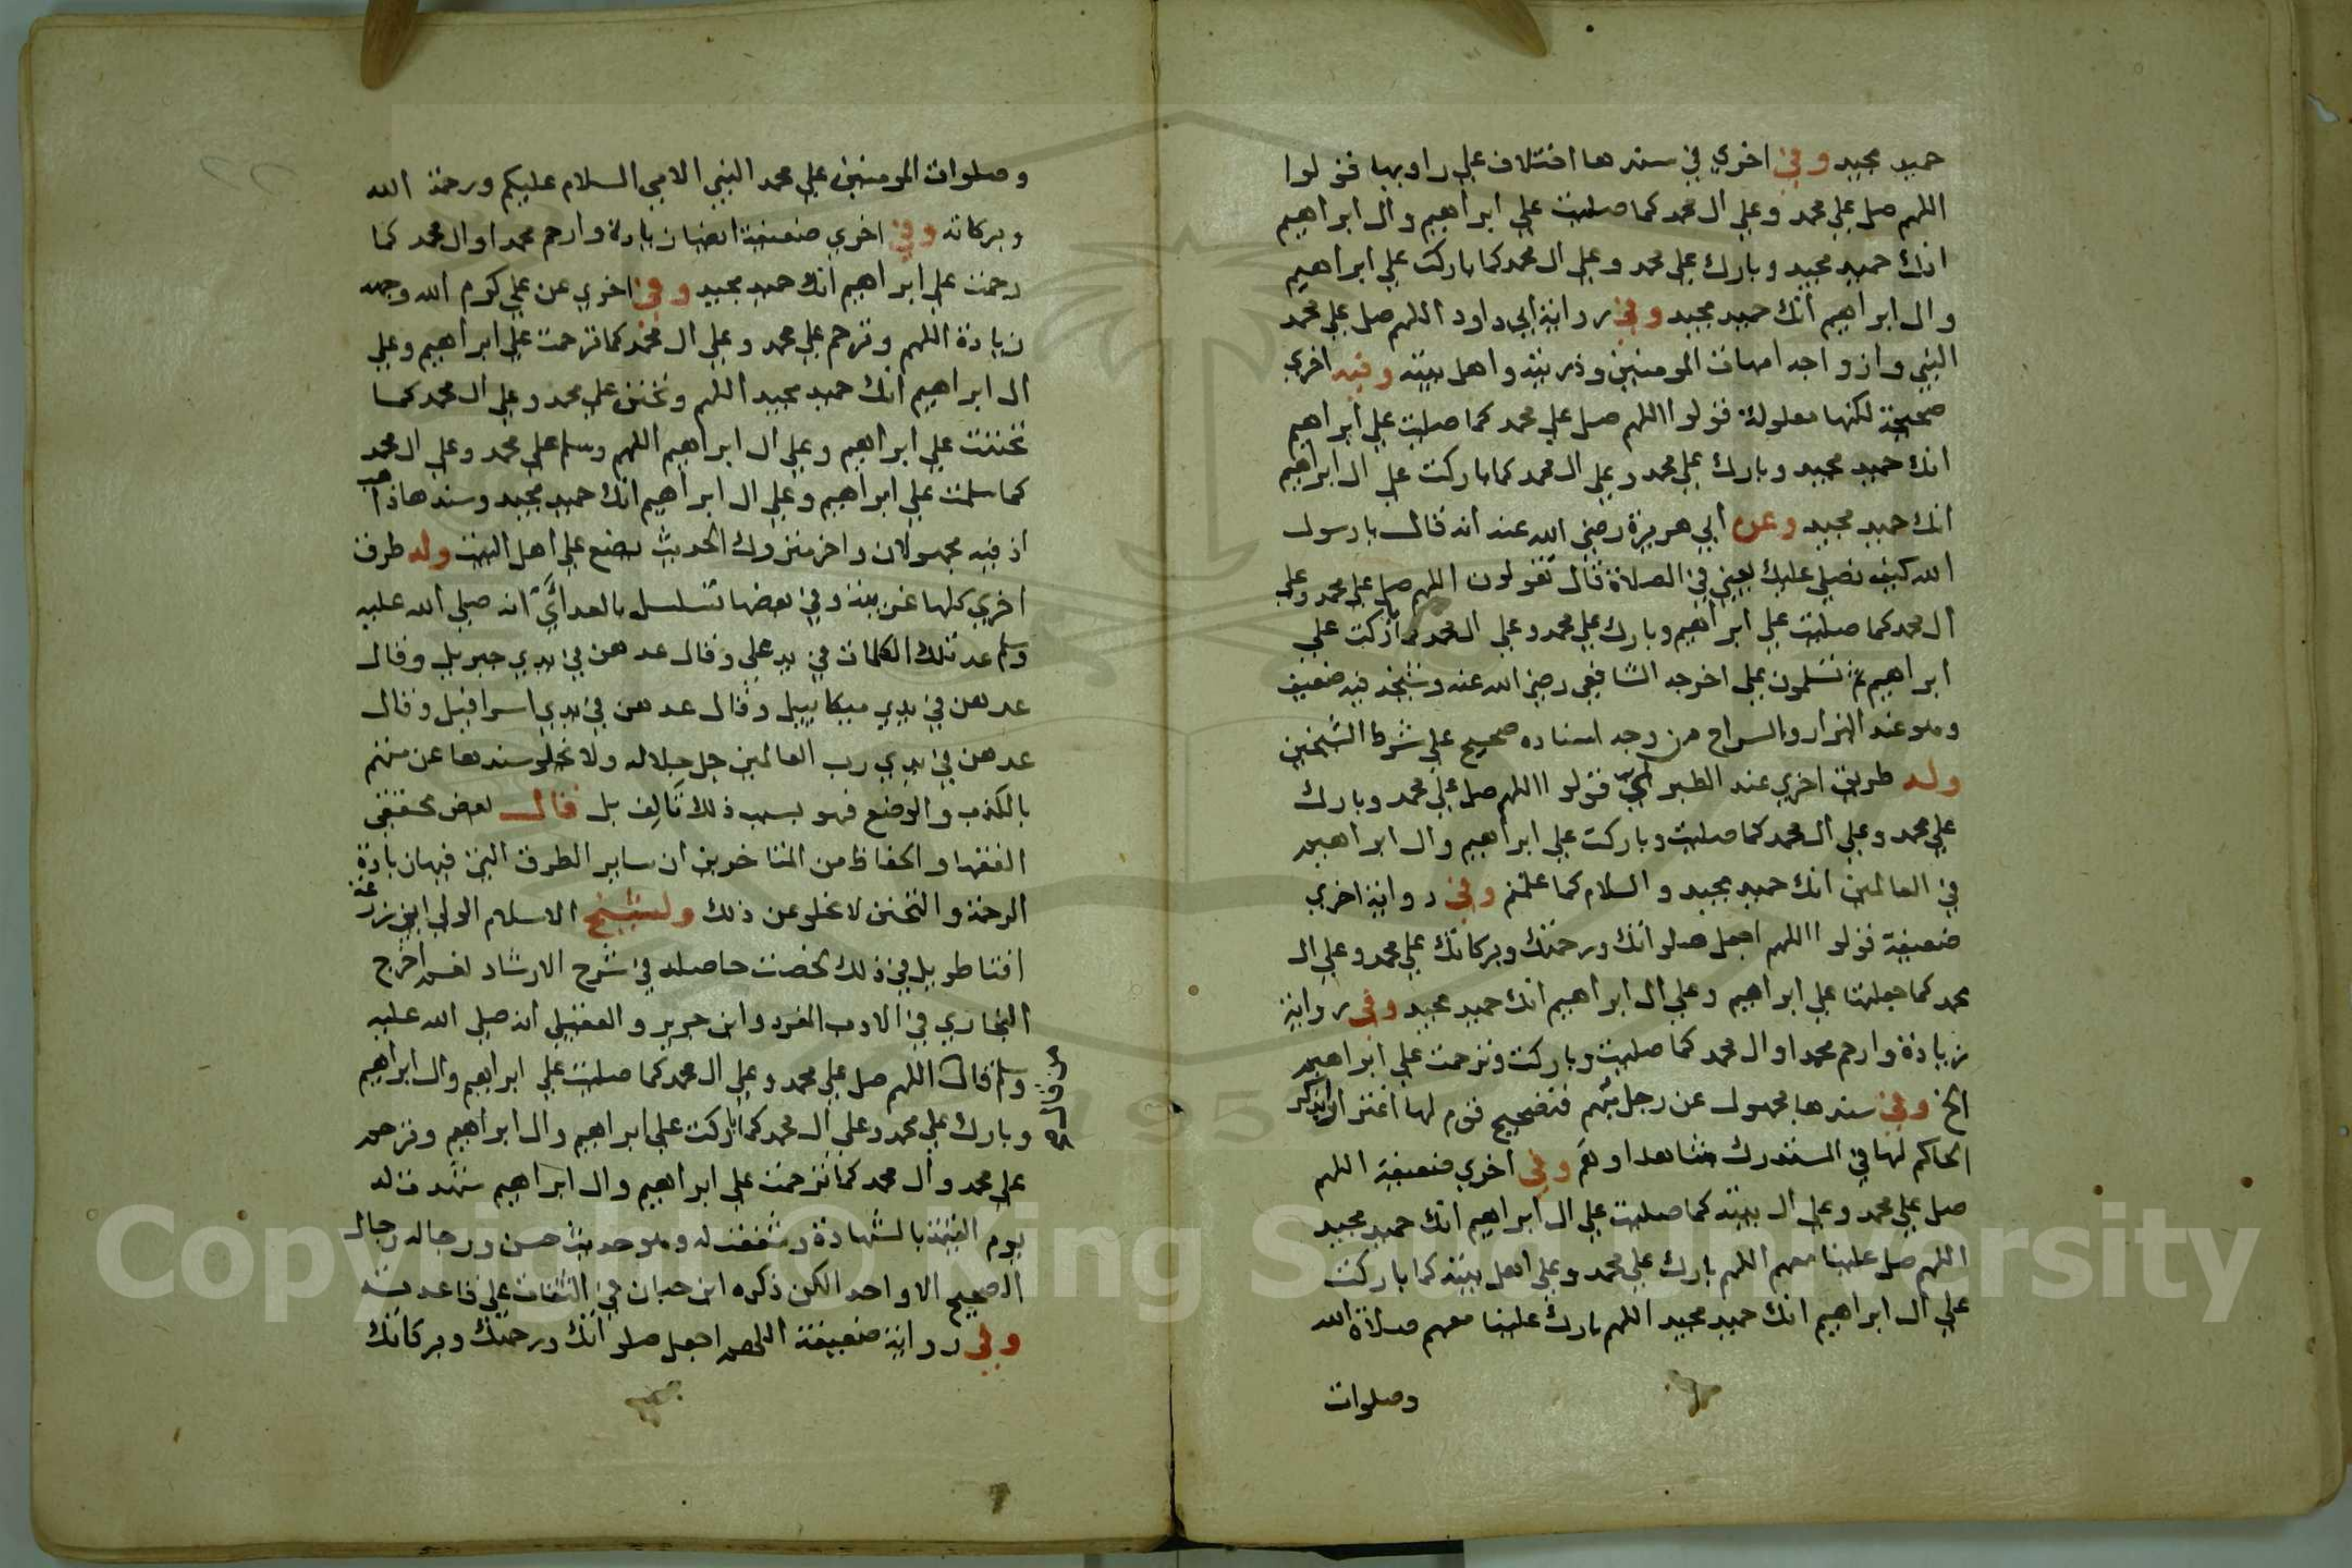 حميد مجيد وفي اخري في سندها اختلاف علي راويها قولوا
اللهم صل علي محمد وعلي ال محمد كما صليت علي ابراهيم وال ابراهيم
انك حميد مجيد وبارك علي محمد وعلي ال محمد كما باركت علي ابراهيم
وال ابراهيم انك حميد مجيد وفي رواية ابي داود اللهم صل علي محمد
النبي وازواجه امهات المومنين وذريته واهل بيته وفيه اخري
صحيحة لكنها معلولة قولوا اللهم صل علي محمد كما صليت علي ابراهيم
انك حميد مجيد وبارك علي محمد وعلي ال محمد كما باركت علي ال ابراهيم
انك حميد مجيد وعن ابي هريرة رضي الله عنه انه قال يا رسول
الله كيف نصلي عليك يعني في الصلاة قال تقولون اللهم صل علي محمد وعلي
ال محمد كما صليت علي ابراهيم وبارك علي محمد وعلي ال محمد كما باركت علي
ابراهيم ثم تسلمون علي اخرجه الشافعي رضي الله عنه وشيخه فيه ضعيف
وهو عند البزار والسراج من وجه اسناده صحيح علي شرط الشيخين
وله طريق اخري عند الطبري قولوا اللهم صل علي محمد وبارك
علي محمد وعلي ال محمد كما صليت وباركت علي ابراهيم وال ابراهيم
في العالمين انك حميد مجيد والسلام كما علمتم وفي رواية اخري
ضعيفة قولوا اللهم اجعل صلواتك ورحمتك وبركاتك علي محمد وعلي ال
محمد كما جعلتها علي ابراهيم وعلي ال ابراهيم انك حميد مجيد وفي رواية
زيادة وارحم محمدا وال محمد كما صليت وباركت وترحمت علي ابراهيم
الخ وفي سندها مجهول عن رجل مبهم فتصحيح قوم لها اغترارا بذكر
الحاكم لها في المستدرك شاهدا وهم وفي اخري ضعيفة اللهم
صل علي محمد وعلي ال بيته كما صليت علي ال ابراهيم انك حميد مجيد
اللهم صل علينا معهم اللهم بارك علي محمد وعلي اهل بيته كما باركت
علي ال ابراهيم انك حميد مجيد اللهم بارك علينا معهم صلاة الله
وصلوات
وصلوات المومنين علي محمد النبي الامي السلام عليكم ورحمة الله
وبركاته وفي اخري ضعيفة ايضا زيادة وارحم محمدا وال محمد كما
رحمت علي ابراهيم انك حميد مجيد وفي اخري عن علي كرم الله وجهه
زيادة اللهم وترحم علي محمد وعلي ال محمد كما ترحمت علي ابراهيم وعلي
ال ابراهيم انك حميد مجيد اللهم وتحنن علي محمد وعلي ال محمد كما
تحننت علي ابراهيم وعلي ال ابراهيم اللهم وسلم علي محمد وعلي ال محمد
كما سلمت علي ابراهيم وعلي ال ابراهيم انك حميد مجيد وسندها ذاهب
اذ فيه مجهولان واخر متروك الحديث يضع علي اهل البيت وله طرق
اخري كلها غريبة وفي بعضها تسلسل بالعد اي انه صلي الله عليه
وسلم عد تلك الكلمات في يد علي وقال عدهن في يدي جبريل وقال
عدهن في يدي ميكاييل وقال عدهن في يدي اسرافيل وقال
عدهن في يدي رب العالمين جل جلاله ولا تخلو سندها عن متهم
بالكذب والوضع فهو بسبب ذلك تالف بل قال بعض محققي
الفقها والحفاظ من المتاخرين ان ساير الطرق التي فيها زيادة
الرحمة والتحنن لا تخلو عن ذلك ولشيخ الاسلام الولي ابي زرعة
افتا طويل في ذلك لخصت حاصله في شرح الارشاد نعم اخرج
البخاري في الادب المفرد وابن جرير والعقيلي انه صلي الله عليه
وسلم قال اللهم صل علي محمد وعلي ال محمد كما صليت علي ابراهيم وال ابراهيم
من قال
وبارك علي محمد وعلي ال محمد كما باركت علي ابراهيم وال ابراهيم وترحم
علي محمد وال محمد كما ترحمت علي ابراهيم وال ابراهيم شهدت له
يوم القيمة بالشهادة وشفعت له وهو حديث حسن ورجاله رجال
الصحيح الا واحد لكن ذكره ابن حبان في الثقات علي قاعدته
وفي رواية ضعيفة اللهم اجعل صلواتك ورحمتك وبركاتك
1957
Copyright © King Saud University